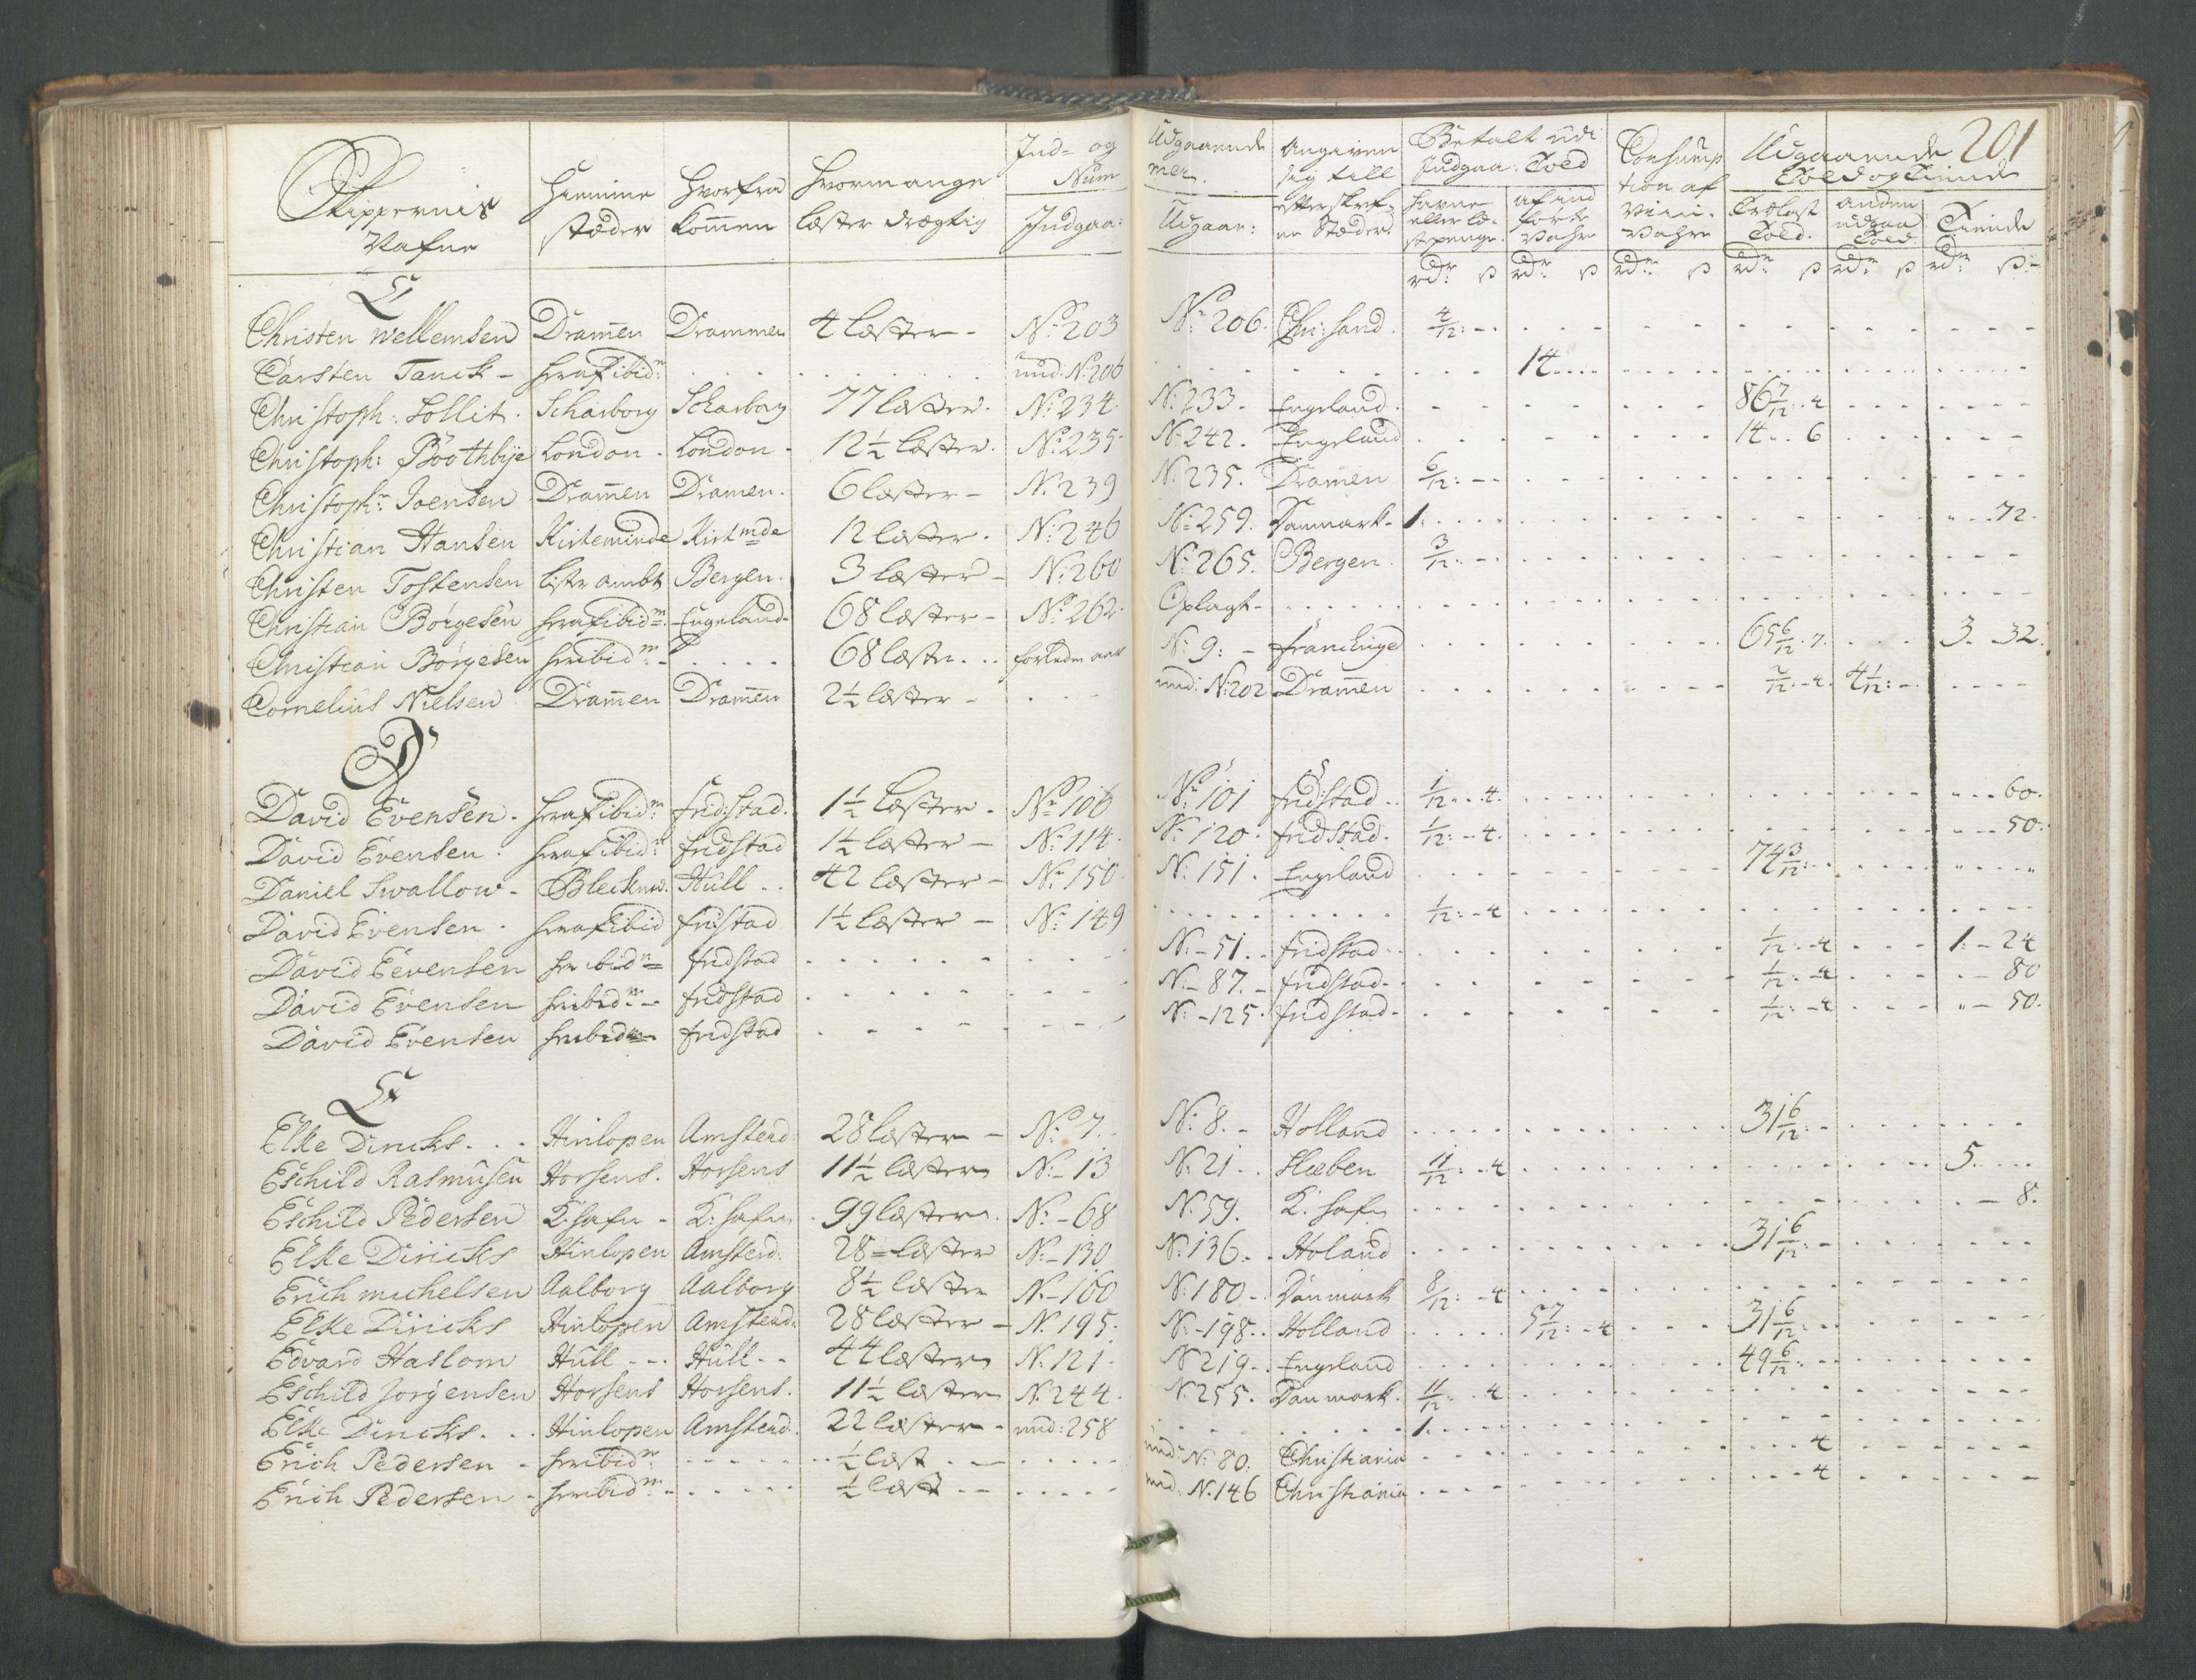 Skippernis Nafne | Hiemme stæder | Hvorfra kommen | Hvormange læster drægtig | Ind- og Num Indgaa: | Udgaaende mer. Udgaae: | Angiven sig till efterskrefne Stæder | Betalt udi Indgaa: Told | Consumption af Viin. Vahre | Udgaaende Told og Tiende | 201
Havne eller læstepenge | af indførte Vahre | Trælast Told. | anden udgaa Told | Tiende
rd. ß rd. ß rd. ß rd. ß rd. ß rd. ß
C
Christen Wellemsen | Dramen | Drammen | 4 læster - | No 203 | No 206. | Chri:sand. | 4/12: -
Carsten Tanck - | heraf ibid: | und: No 206 | 14
Christoph: Sollit. | Scharborg | Scharborg | 77 læster. | No 234. | No 233. | Engeland. | 86 7/12 . 4
Christoph: Boothbÿe | London. | London - | 12½ læster. | No 235. | No 242. | Engeland | 14 . . 6
Christoph: Joensen | Dramen | Dramen. | 6 læster - | No 239 | No 235. | Dramen | 6/12: -
Christian Hansen | Kirteminde | Kirtmde | 12 læster. | No 246 | No 259. | Danmark. | 1. | 72.
Christen Tostensen | Liste ambt | Bergen. | 3 læster - | No 260 | No 265. | Bergen. | 3/12: -
Christian Börgesen | heraf ibidm: | Engeland- | 68 læster - | No 262. | Oplagt -
Christian Börgesen | heribidm: - | 68 læste. | forleden aar | No 9: - | Franckrige | 65 6/12 . 7. | 3. 32.
Cornelius Nielsen | Dramen | Dramen | 2½ læster - | und: No 202 | Dramen | 2/12: - 4. | 4 1/12: -
D
David Evensen. | heraf ibidm: | fridstad. | 1½ læster. | No 106 | No 101 | fridstad. | 1/12 . . 4. | 60.
David Evensen. | heraf ibidm: | fridstad | 1½ læster - | No 114. | No 120. | fridstad. | 1/12: - 4. | 50.
Daniel Swallow. | Hull.. | 42 læster - | No 150. | No 151. | Engeland | 74 3/12:
David Evensen. | heraf ibid | fristad | 1½ læster - | No 149 | 1/12: - 4
David Eevensen | her ibidm | fridstad | No - 51. | fridstad | 1/12: - 4 | 1: - 24
David Evensen | heribidm - | fridstad | No - 87. | fridstad. | 1/12: - 4 | 80
David Evensen | heribidm | fridstad | No - 125. | fridstad. | 1/12: - 4 | 50.
E
Elke Dircks. | Hinlopen | Amsterd: | 28 læster - | No 7. | No 8. - | Holland | 31 6/12: -
Eschild Rasmusen | Horsens. | Horsens | 11½ læster | No - 13 | No 21. | Sleben | 11/12: . 4 | 5.
Eschild Pedersen | K: hafn - | K: hafn | 99 læster. | No - 68 | No 59. | K: hafn | 8.
Elke Diricks | Hinlopen | Amsterd. | 28 - læster | No - 130 | No 136. | Holand | 31 6/12: -
Erich michelsen | Aalborg | Aalborg | 8½ læster | No - 160 | No 180 - | Danmark | 8/12: - 4
Elke Diricks | Hinlopen | Amsterd: | 28 læster - | No 195. | No - 198. | Holland | 5 7/12: - 4 | 31 6/12:
Edvard Haslom | Hull - - | Hull - - | 44 læster | No 121. | No 219. | Engeland | 49 6/12:
Eschild Jorgensen | Horsens | Horsens. | 11½ læster | No 244. | No 255. | Danmark. | 11/12: . 4
Elke Dircks. | Hinlopen | Amsterd. | 22 læster. | und: 258 | 1.
Erich Pedersen - | heribidm: | ½ læst | und: No 80. | Christiania | 4
Erich Pedersen - | heribidm: - | ½ læst | und: No 146 | Christiania | 4